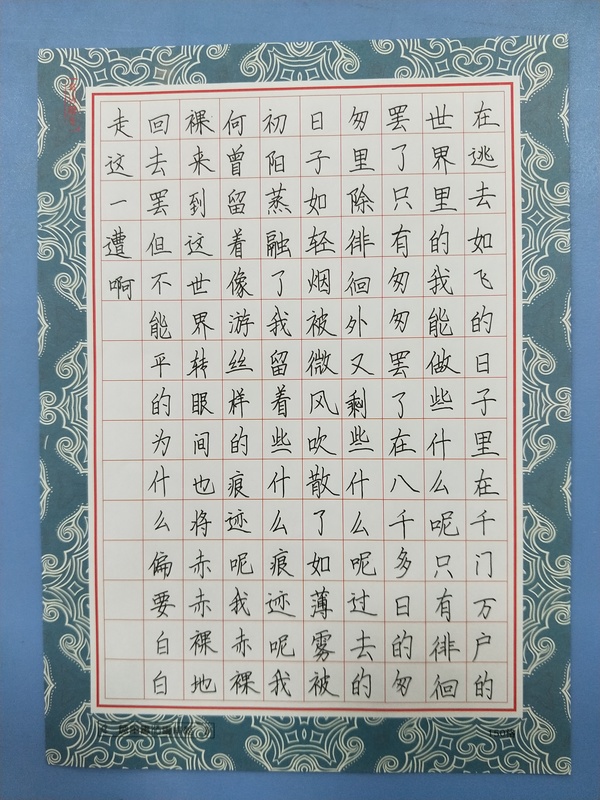 在逃去如飞的日子里在千门万户的
世界里的我能做些什么呢只有徘徊
罢了只有匆匆罢了在八千多日的匆
匆里除徘徊外又剩些什么呢过去的
日子如轻烟被微风吹散了如薄雾被
初阳蒸融了我留着些什么痕迹呢我
何曾留着像游丝样的痕迹呢我赤裸
裸来到这世界转眼间也将赤赤裸地
回去罢但不能平的为什么偏要白白
走这一遭啊